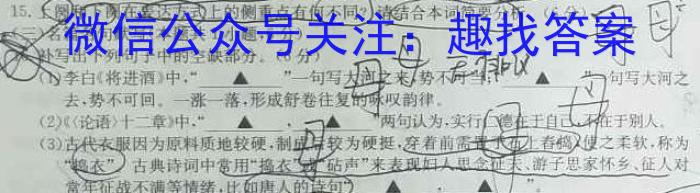 15.上阕和下阕在表达方式上的侧重点有何不同?请结合本词简要分析。(6分)
微信公众号关注：趣找答案
补写出下列句子中的空缺部分。(6分)
(1)李白《将进酒》中,“▲”一句写大河之来,势不可当;“▲”句写大河之
去,势不可回。一涨一落,形成舒卷往复的咏叹韵律。
(2)《〈论语〉十二章》中,“▲,▲”两句认为,实行仁德在于自己,不在于别人。
(3)古代衣服因为原料质地较硬,制成后较为硬挺,穿着前需置于石上舂捣,使之柔软,称为
“捣衣”。古典诗词中常用“捣衣”或“砧声”来表现妇人思念征夫、游子思家怀乡、征人对
常年征战不满等情绪,比如唐人的诗句“▲,▲